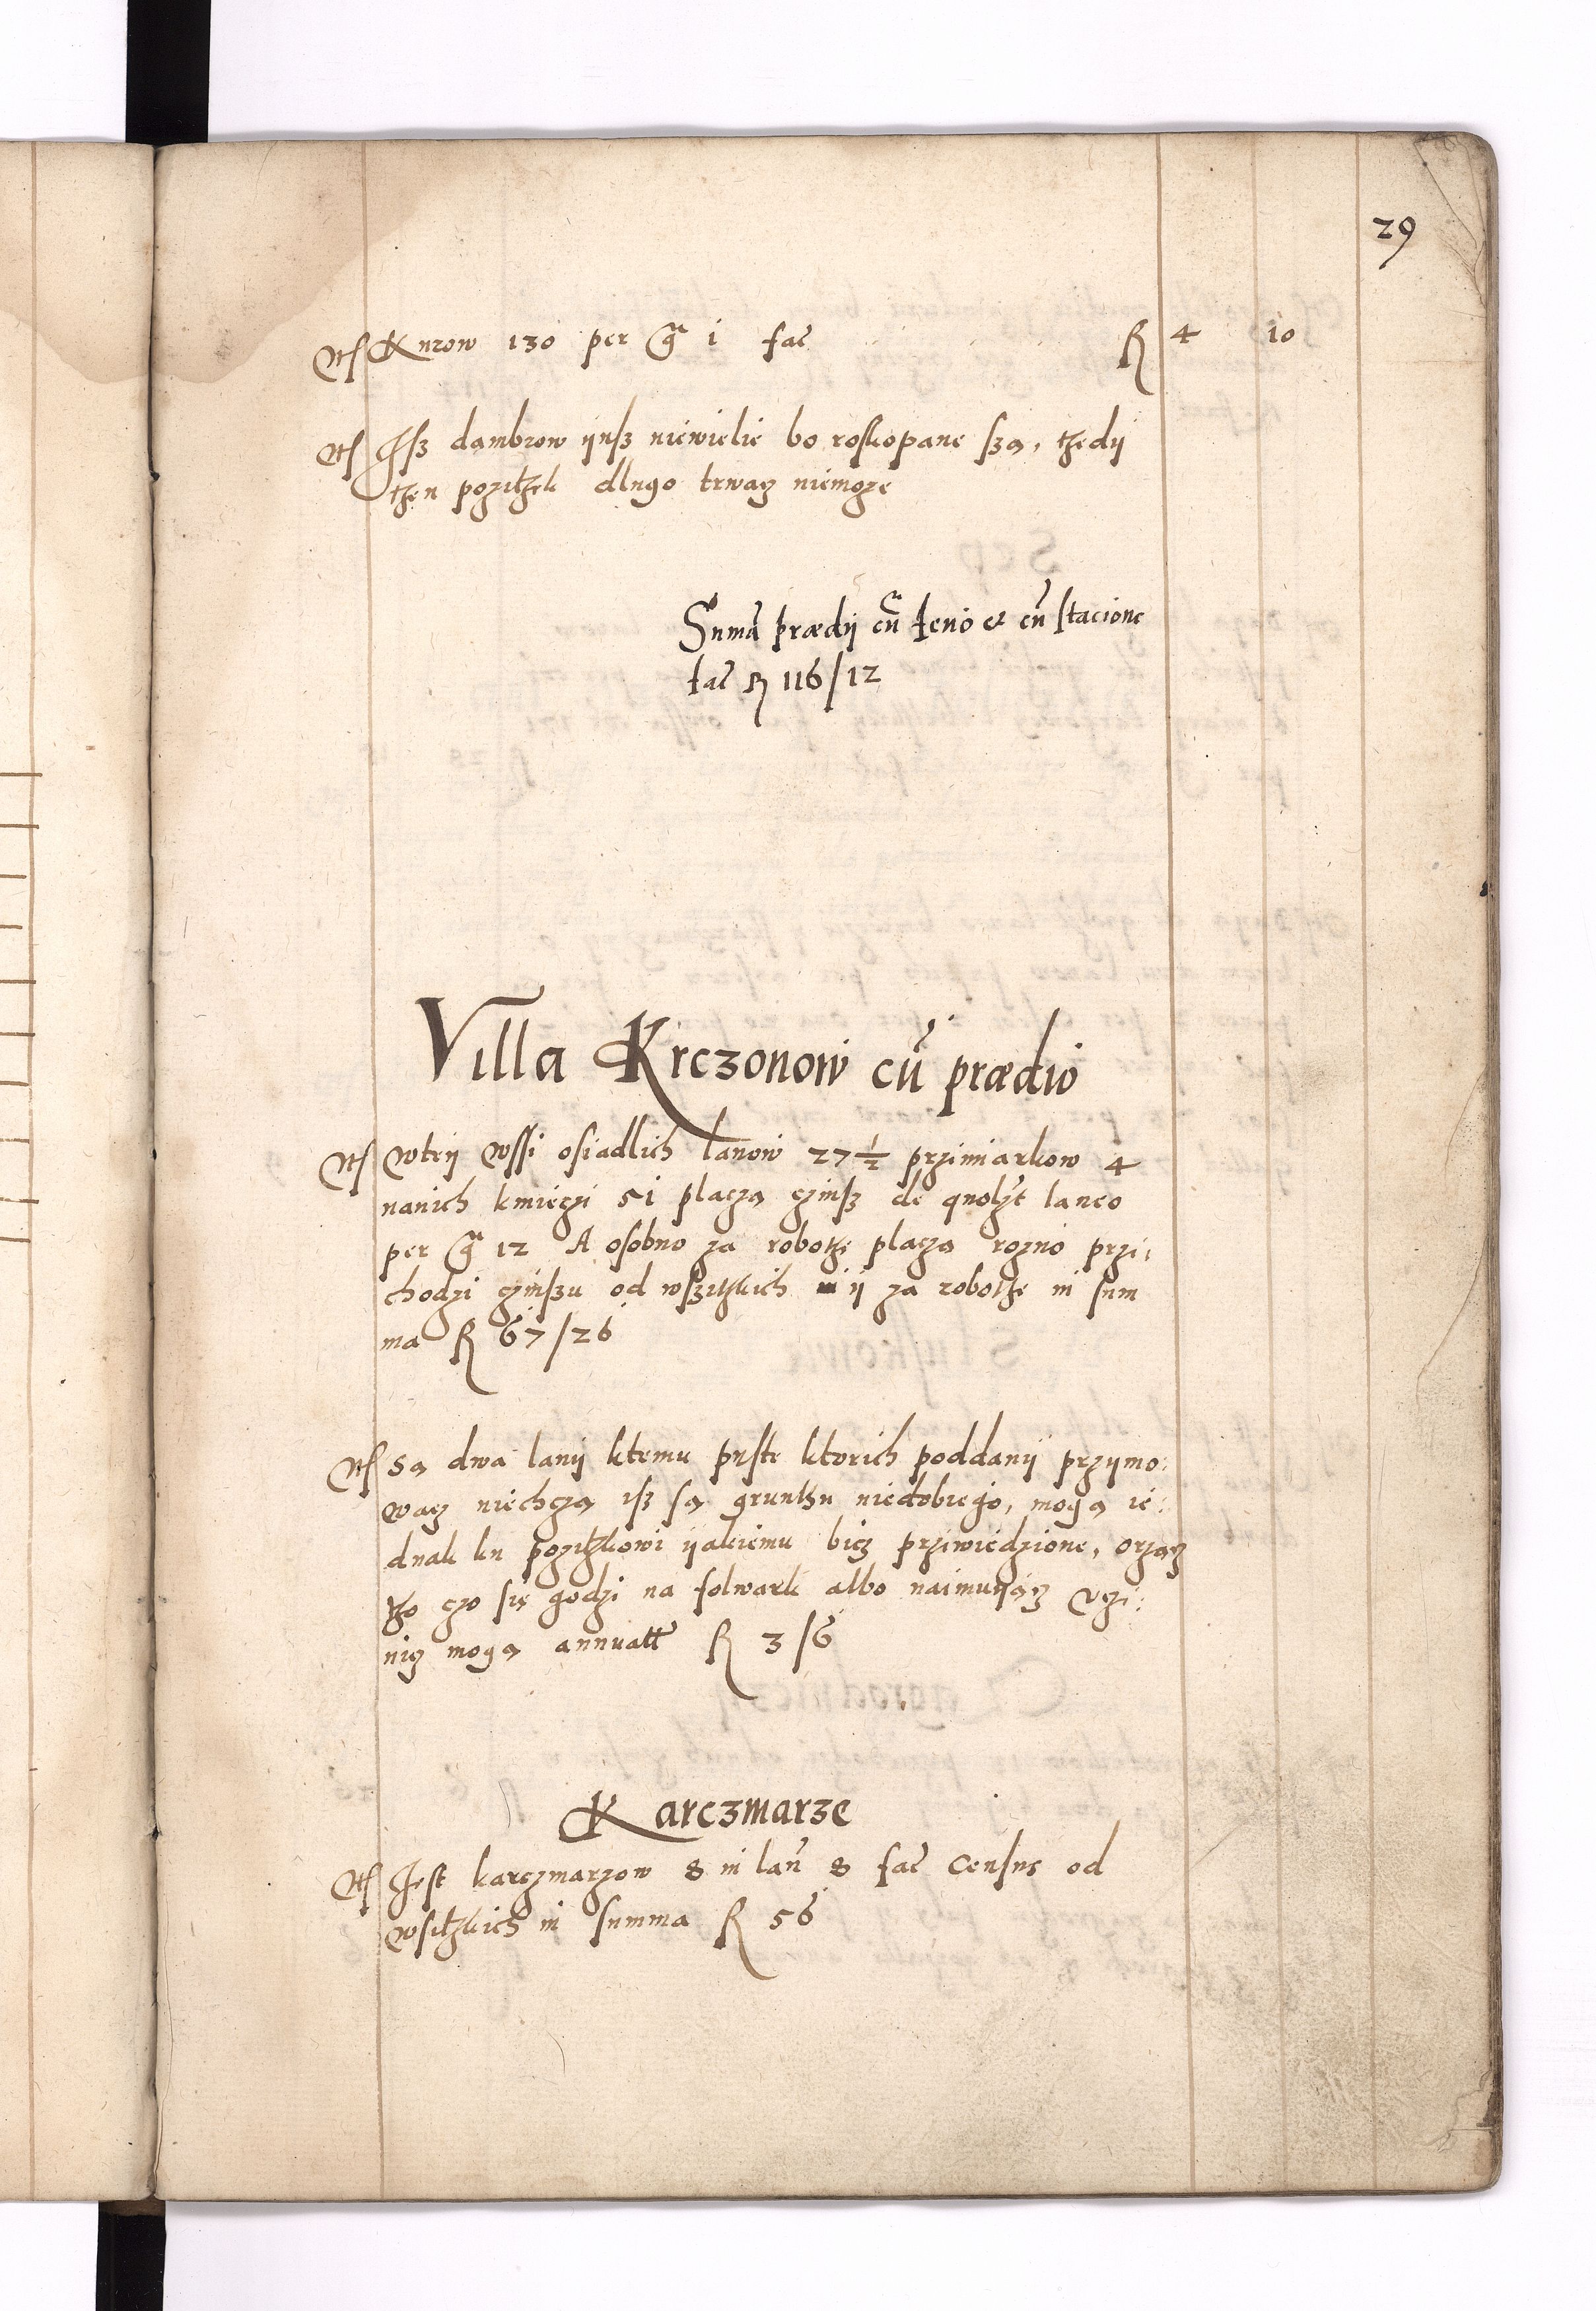 29
Itʃ Kurow 130 per gͣ i facͭ R 4 10
Itʃ Jsz dambrow ijnsz niewielie bo roskopane szą, thedij
then pozithek dlugo trwacz niemoze
Summa prædij cū feno et cū stacione
facͭ R 116/12
Villa Krczonow cū prædio
Itʃ Wteij Wssi osiadlich lanow 27 1/2 przimiarkow 4
nanich kmieczi 51 placzą czinsz de quolżt laneo
per gͣ 12 A osobno za robothe placzą rozno przi:
chodzi czinszu od wszithkich ij za robothe in sum
ma R 67/26
Itʃ Są dwa lanij ktemu puste ktorich poddanij przijmo:
wacz niechczą isz są grunthu niedobrego, mogą ie:
dnak ku pozithkowi ijakiemu bicz prziwiedzione, orzącz
tho czo się godzi na folwark albo naimuijącz vczi:
nicz mogą annuatī R 3/6
Karczmarze
Itʃ Jest karczmarzow 8 in lan̄ 8 facͭ Census od
wsithkich in summa R 56